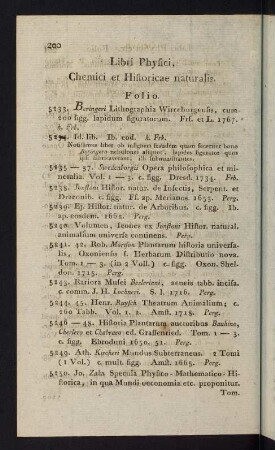 200
Libri Physici,
Chemici et Historicae naturalis.
Folio.
5233. Beringeri Lithographia Wirceburgensis, cum
200 figg. lapidum figuratorum. Frf. et L. 1767.
h. Frb.
5234. Id. lib. Ib. eod. h. Frb.
Notissimus liber ob insignem fraudem quam fecerunt bono
Beringero nebulones aliquot, lapides figuratos quos
ipsi fabricaverant, ibi submittentes.
5235 — 37. Swedenborgii Opera philosophica et mi-
neralia. Vol. 1 — 3 c. figg. Dresd. 1734. Frb.
5238. Jonstoni Histor. natur. de Insectis, Serpent. et
Draconib. c. figg. Ff. ap. Merianos. 1653. Perg.
5239. Ej. Histor. natur. de Arboribus. c. figg. Ib.
ap. eosdem. 1662. Perg.
5240. Volumen, Icones ex Jonstoni Histor. natural.
animalium universa continens. Perg.
5241. 42. Rob. Morison Plantarum historia universa-
lis, Oxoniensis f. Herbarum Distributio nova.
Tom. 1 — 3. (in 2 Voll.) c. figg. Oxon. Shel-
don. 1715. Perg.
5243. Rariora Musei Besleriani, aeneis tabb. incisa,
c. comm. J. H. Lochneri. S. l. 1716. br.
5244. 45. Henr. Ruysch Theatrum Animalium; c.
260 Tabb. Vol. 1. 2. Amst. 1718. Perg.
5246 — 48. Historia Plantarum auctoribus Bauhino,
Cherlero et Chabraeo ed. Graffenried. Tom. 1 — 3.
c. figg. Ebroduni 1650. 51. Perg.
5249. Ath. Kircheri Mundus Subterraneus. 2 Tomi
(1 Vol.) c. mult. figg. Amst. 1665. Perg.
5250. Jo. Zahn Specula Physico-Mathematico-Hi-
storica, in qua Mundi oeconomia etc. proponitur.
Tom.